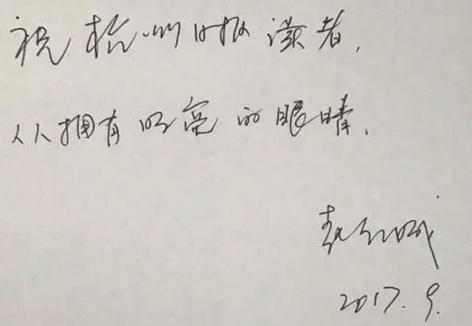 祝杭州日报读者，
人人拥有明亮的眼睛，
2017.9.